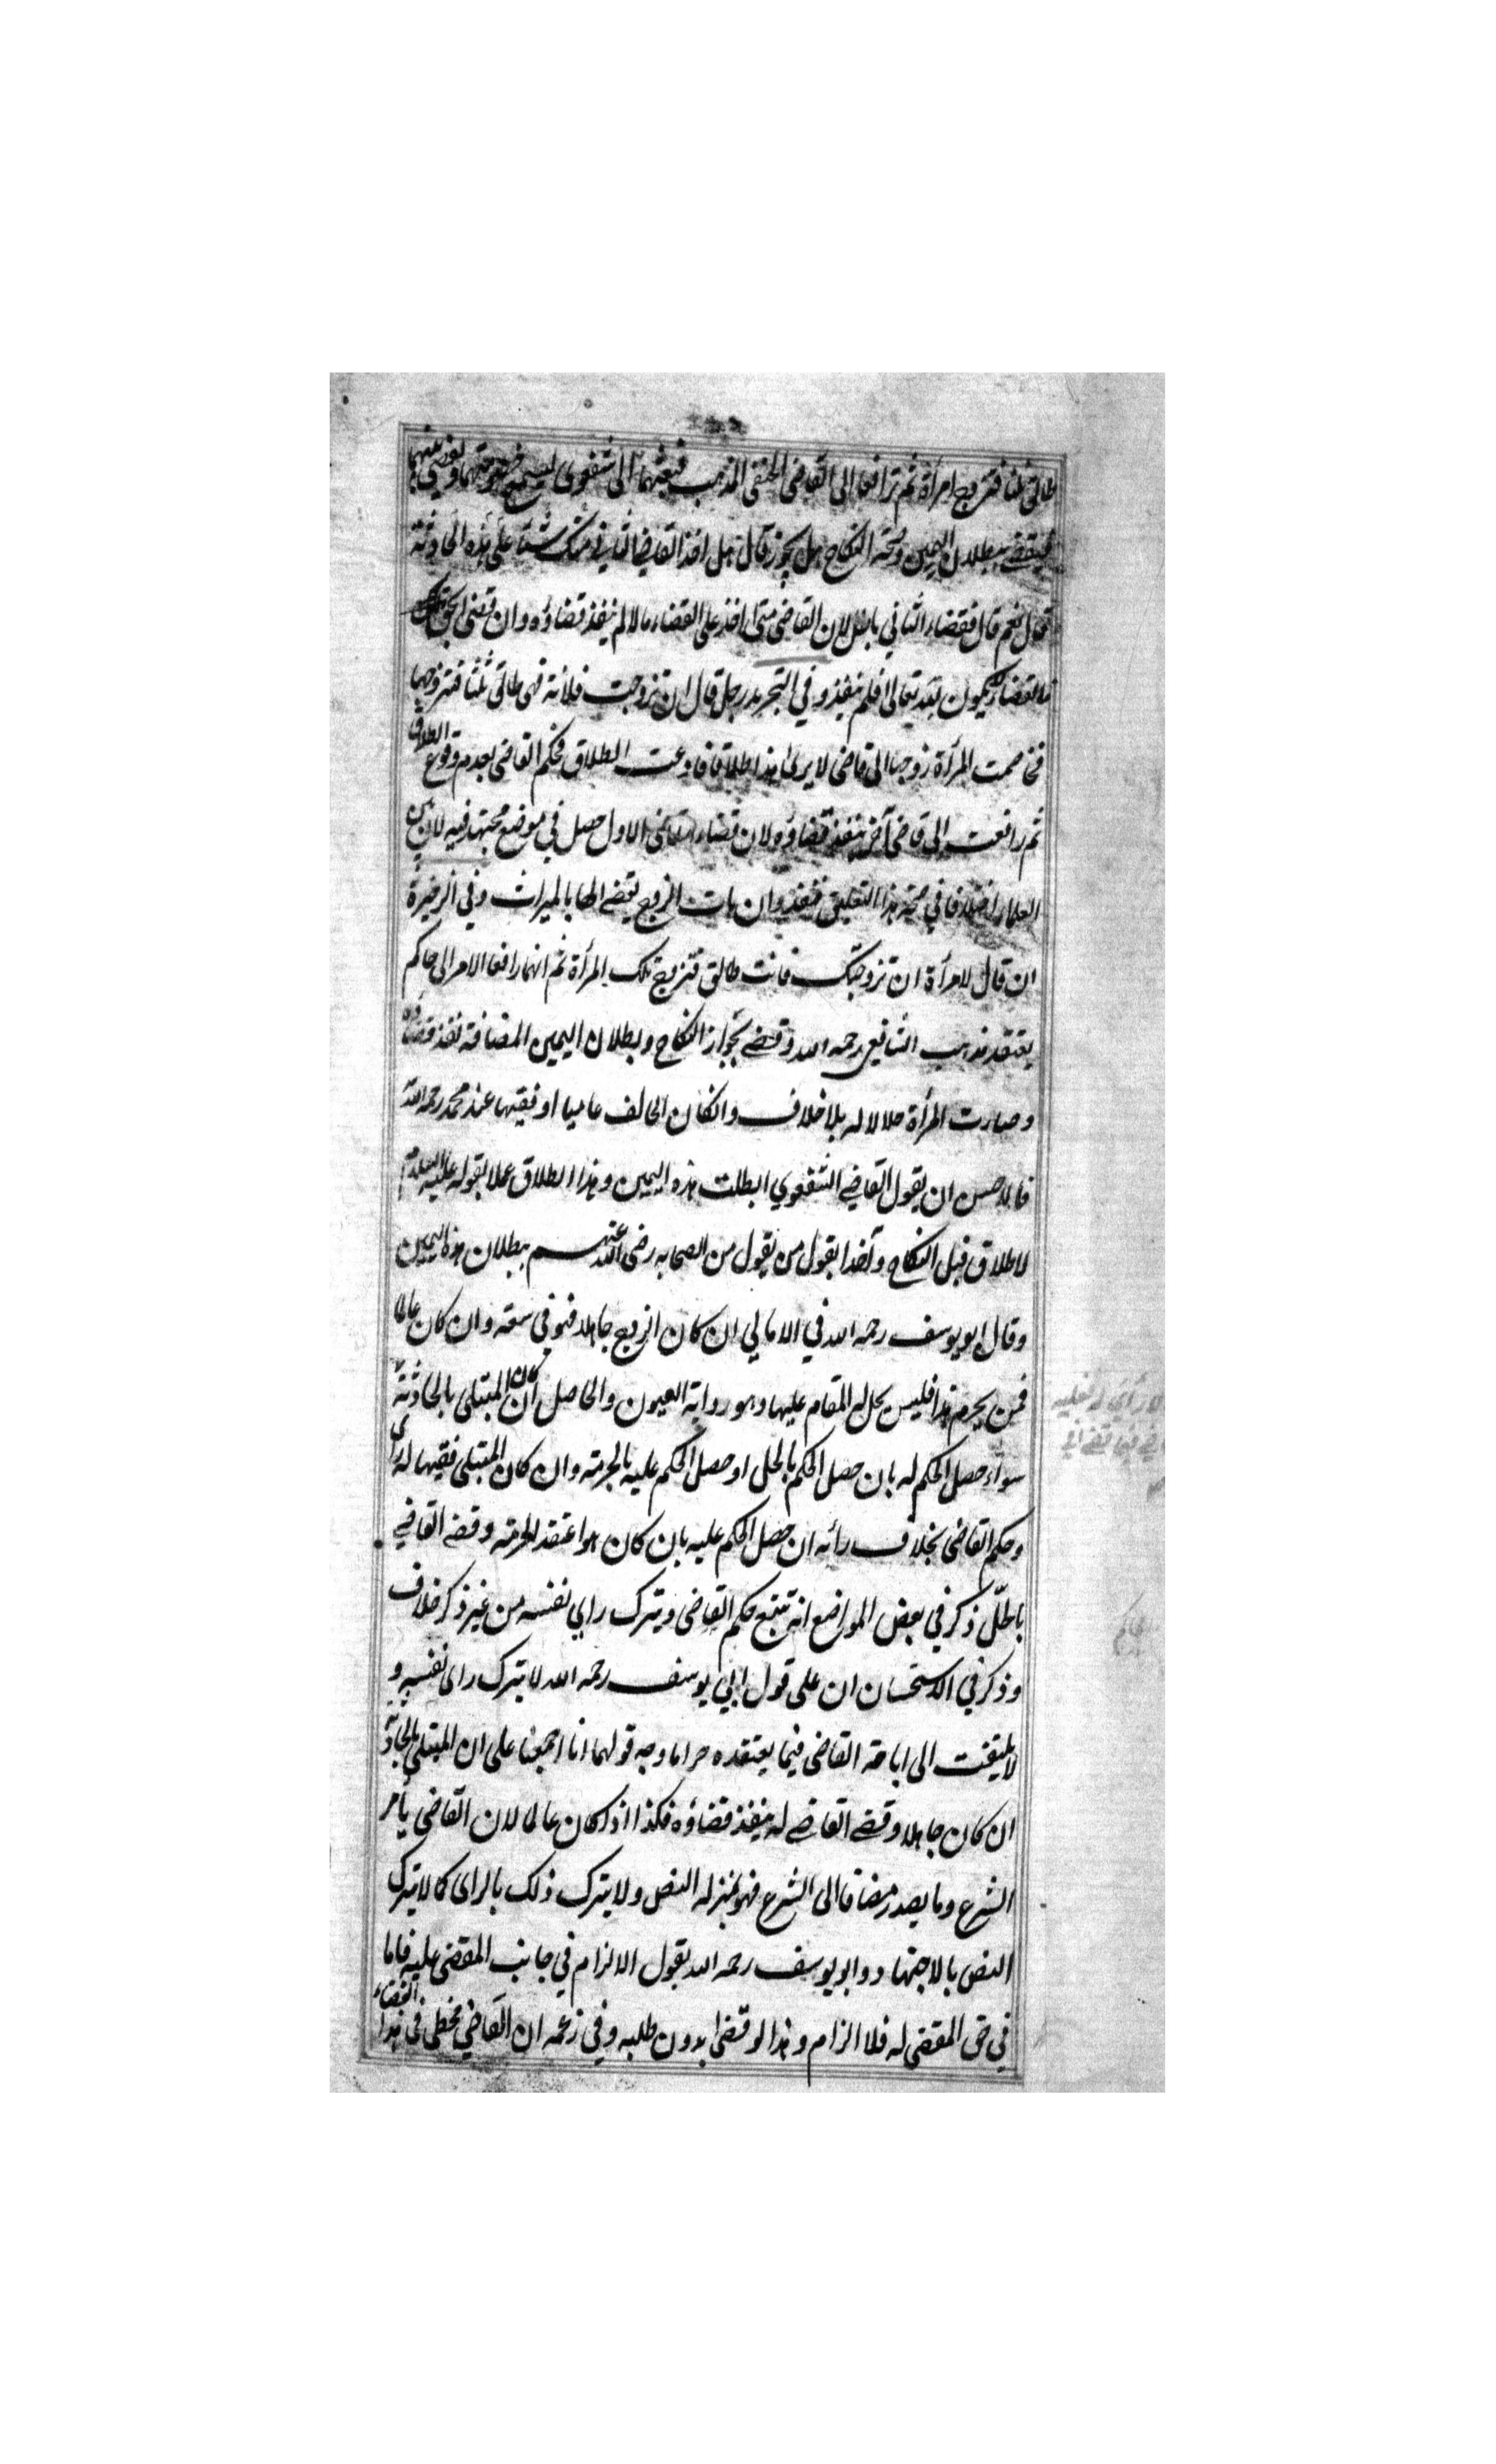 طالق ثلثا فتزوج امرأة ثم ترافعا الى القاضى الحنفى المذهب فبعثهما الى شفعوى ليسمع خصومتهما ويقضى بينهما
فيقضے ببطلان اليمين وصحة النكاح هل يجوز قال هل اخذ القاضے الثانى منك شيئا على هذه الحادثة
فقال نعم قال فقضاء الثانى باطل لان القاضى متى اخذ على القضاء مالا لم ينفذ قضاؤه وان قضى بحق
فالقضاء يكون لله تعالى فلم ينفذ وفي التجريد رجل قال ان تزوجت فلانة فهى طالق ثلثا فتزوجها
فخاصمت المرأة زوجها الى قاضى لا يرى هذا طلاقا فادعت الطلاق فحكم القاضى بعدم وقوع الطلاق
ثم رافعت الى قاضى آخر ينفذ قضاؤه لان قضاء القاضى الاول حصل في موضع مجتهد فيه لان بين
العلماء اختلافا في صحة هذا التعليق فينفذ وان مات الزوج يقضے لها بالميراث وفي الذخيرة
ان قال لامرأة ان تزوجتك فانت طالق فتزوج تلك المرأة ثم انهما رافعا الامر الى حاكم
يعتقد مذهب الشافعى رحمه الله وقضے بجواز النكاح وبطلان اليمين المضافة نفذ قضاؤه
وصارت المرأة حلالا له بلا خلاف وانكان الحالف عاميا او فقيها عند محمد رحمه الله
فالاحسن ان يقول القاضے الشفعوي ابطلت هذه اليمين وهذا الطلاق عملا بقوله عليه السلام
لا طلاق قبل النكاح وآخذا بقول من يقول من الصحابه رضى الله عنهم ببطلان هذه اليمين
وقال ابو يوسف رحمه الله في الامالي ان كان الزوج جاهلا فهو في سعة وان كان عالما
فمن يحرم هذا فليس يحل له المقام عليها وهو رواية العيون والحاصل ان كان المبتلى بالحادثة
سواء حصل الحكم له بان حصل الحكم بالحل او حصل الحكم عليه بالحرمة وان كان المبتلى فقيها له رأى
وحكم القاضى بخلاف رأئه ان حصل الحكم عليه بان كان هو اعتقد الحرمة وقضے القاضے
باطل ذكر في بعض المواضع انه يتبع حكم القاضى ويترك رايي نفسه من غير ذكر خلاف
وذكر في الاستحسان ان على قول ابي يوسف رحمه الله لا يترك راى نفسه و
لا يلتفت الى اباحة القاضى فيما يعتقده حراما وجه قولهما انا اجمعنا على ان المبتلى بالحادثة
ان كان جاهلا وقضے القاضے له ينفذ قضاؤه فكذا اذا كان عالما لان القاضى يأمر
الشرع وما يصدر مضافا الى الشرع فهو بمنزلة النص ولا يترك ذلك بالراى كما لا يترك
النص بالاجتهاد وابو يوسف رحمه الله يقول الالزام في جانب المقضى عليه فاما
في حق المقضى له فلا الزام ولهذا لو قضى بدون طلبه وفي زعمه ان القاضى مخطى في هذا القضاء